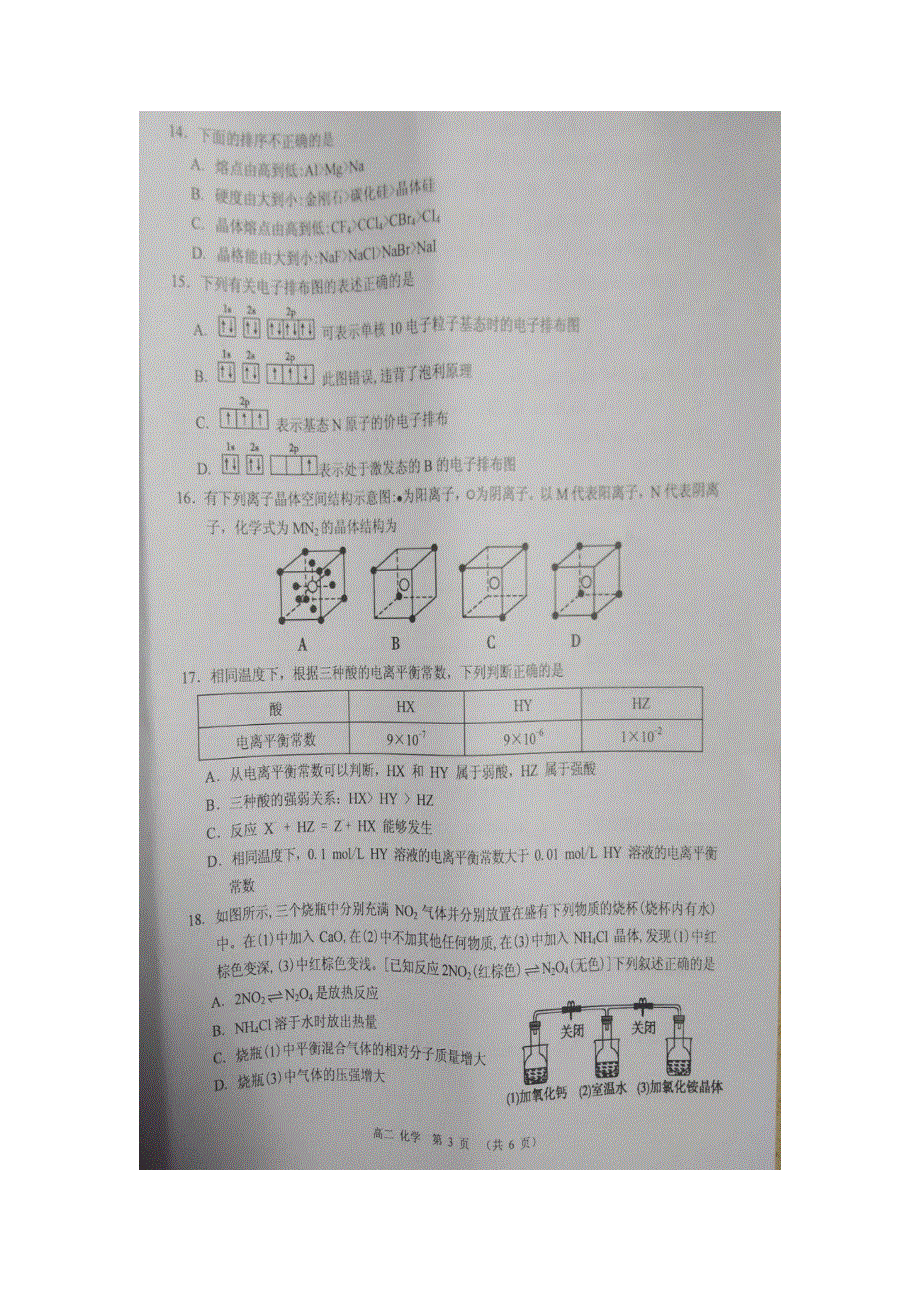 14. 下面的排序不正确的是
A. 熔点由高到低:Al>Mg>Na
B. 硬度由大到小:金刚石>碳化硅>晶体硅
C. 晶体熔点由高到低:CF4>CCl4>CBr4>CI4
D. 晶格能由大到小:NaF>NaCl>NaBr>NaI
15. 下列有关电子排布图的表述正确的是
1s 2s 2p
A. ↑↓ ↑↓ ↑↓↑↓↑↓ 可表示单核 10 电子粒子基态时的电子排布图
1s 2s 2p
B. ↑↓ ↑↓ ↑ ↑ ↓ 此图错误,违背了泡利原理
2p
C. ↑ ↑ ↑ 表示基态 N 原子的价电子排布
1s 2s 2p
D. ↑↓ ↑↓ ↑ 表示处于激发态的 B 的电子排布图
16. 有下列离子晶体空间结构示意图:●为阳离子, ○为阴离子. 以 M 代表阳离子, N 代表阴离
子, 化学式为 MN2 的晶体结构为
A B C D
17. 相同温度下, 根据三种酸的电离平衡常数, 下列判断正确的是
酸 HX HY HZ
电离平衡常数 9×10-7 9×10-6 1×10-2
A. 从电离平衡常数可以判断, HX 和 HY 属于弱酸, HZ 属于强酸
B. 三种酸的强弱关系: HX> HY > HZ
C. 反应 X- + HZ = Z-+ HX 能够发生
D. 相同温度下, 0.1 mol/L HY 溶液的电离平衡常数大于 0.01 mol/L HY 溶液的电离平衡
常数
18. 如图所示,三个烧瓶中分别充满 NO2 气体并分别放置在盛有下列物质的烧杯(烧杯内有水)
中。在(1)中加入 CaO,在(2)中不加其他任何物质,在(3)中加入 NH4Cl 晶体,发现(1)中红
棕色变深,(3)中红棕色变浅。[已知反应 2NO2(红棕色)⇌N2O4(无色)]下列叙述正确的是
A. 2NO2⇌N2O4是放热反应
B. NH4Cl 溶于水时放出热量
C. 烧瓶(1)中平衡混合气体的相对分子质量增大
D. 烧瓶(3)中气体的压强增大
关闭 关闭
(1)加氧化钙 (2)室温水 (3)加氯化铵晶体
高二 化学 第 3 页 (共 6 页)